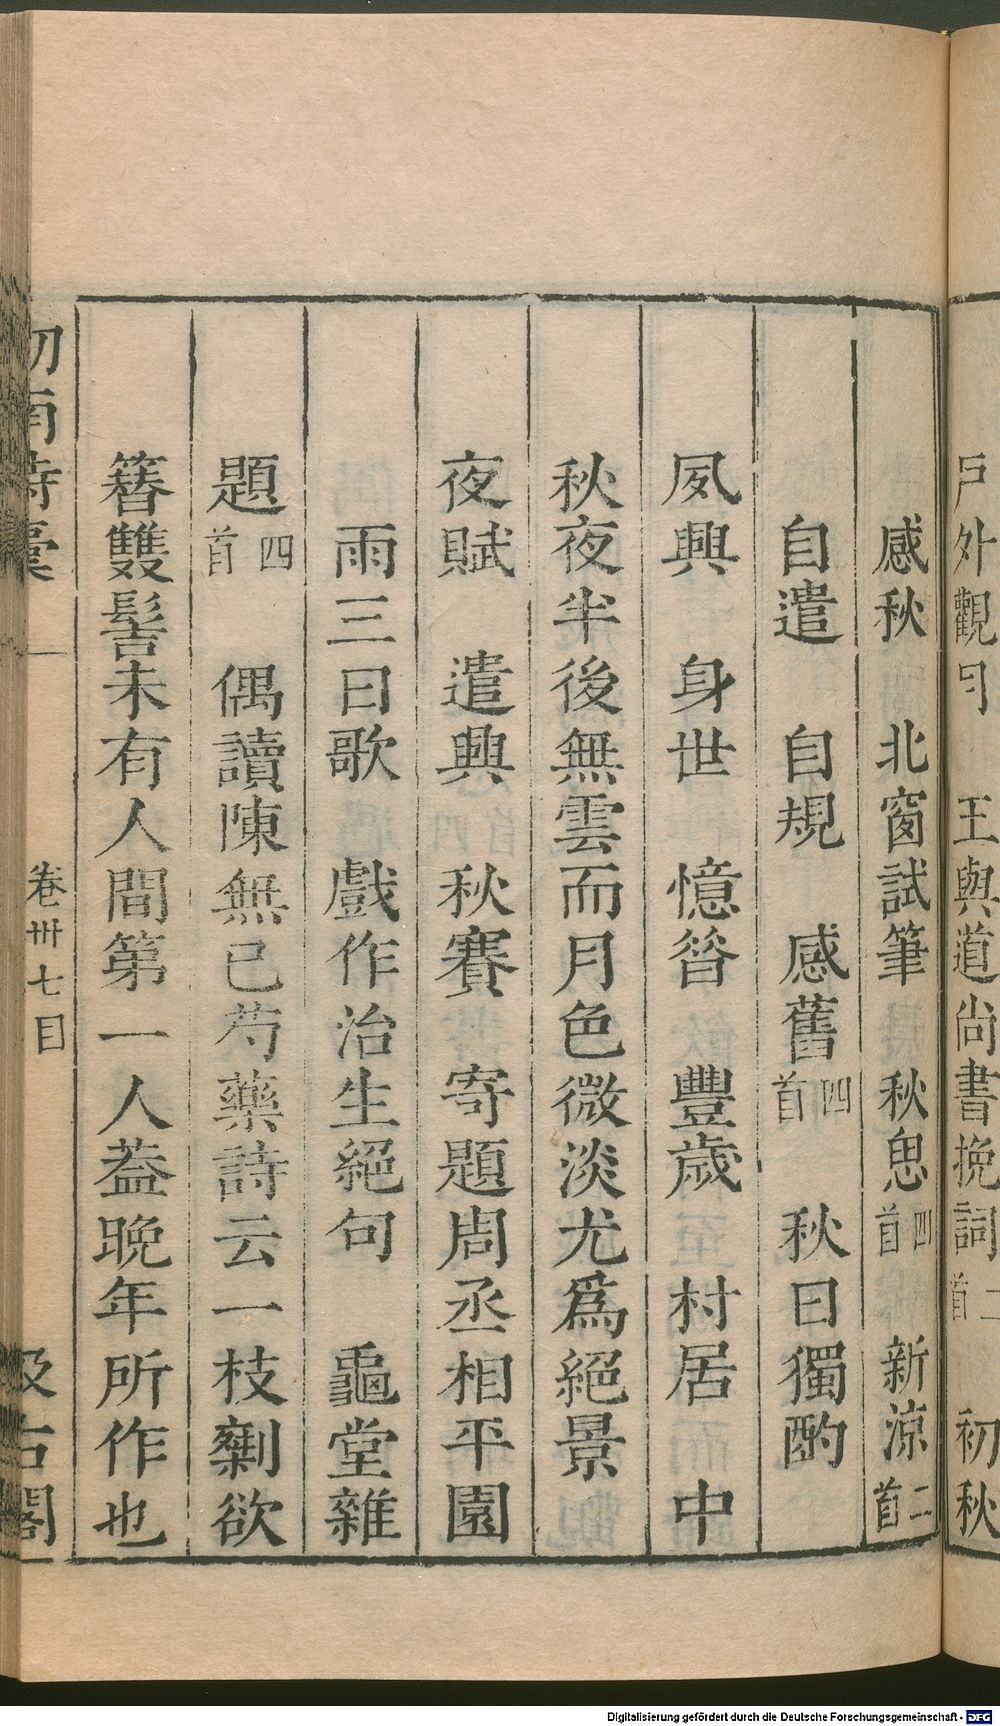 戶外觀月 王與道尚書挽詞二首 初秋
感秋 北窗試筆 秋思四首 新涼二首
自遣 自規 感舊四首 秋日獨酌
夙興 身世 憶昔 豐歲 村居 中
秋夜半後無雲而月色微淡尤爲絕景
夜賦 遣興 秋賽 寄題周丞相平園
雨三日歌 戲作治生絕句 龜堂雜
題四首 偶讀陳無已芍藥詩云一枝剩欲
簪雙髻未有人間第一人葢晚年所作也
劒南詩稾 卷卅七目 汲古閣
Digitalisierung gefördert durch die Deutsche Forschungsgemeinschaft - DFG